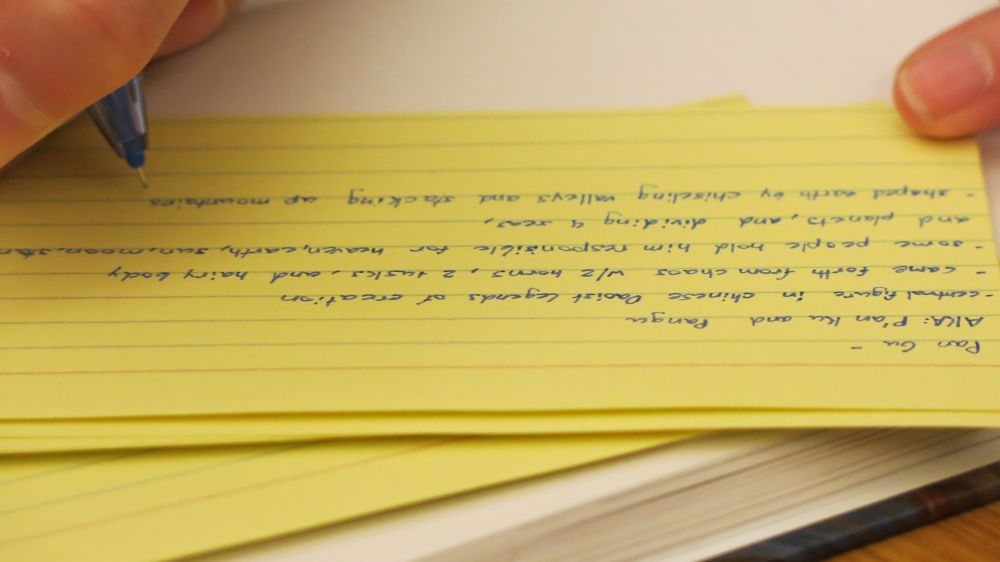 Pan Gu -
AKA: P'an Ku and Pangu
- central figure in chinese Daoist legends of creation
- came forth from chaos w/2 horns, 2 tusks, and hairy body
- some people hold him responsible for heaven, earth, sun, moon, stars,
and planets, and dividing 4 seas,
- shaped earth by chiseling valleys and stacking up mountains